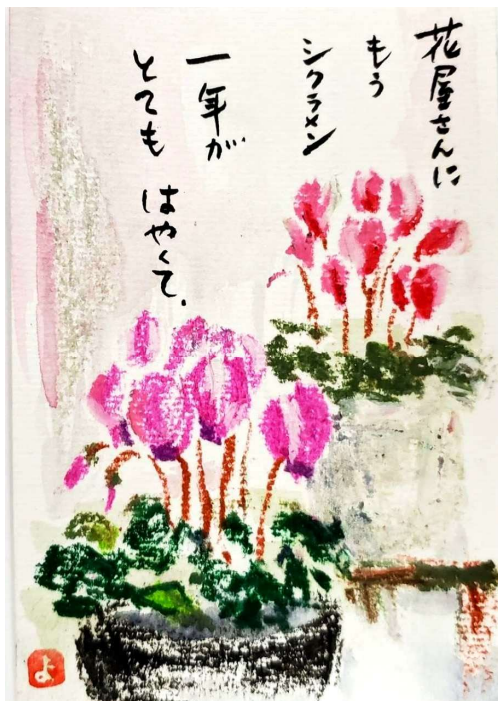 花屋さんに
もう
シクラメン
一年が
とても はやくて.
よ